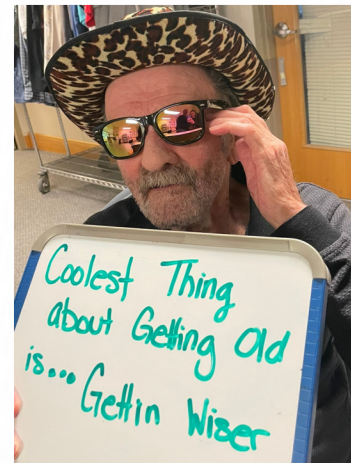 Coolest Thing
about Getting Old
is... Gettin Wiser